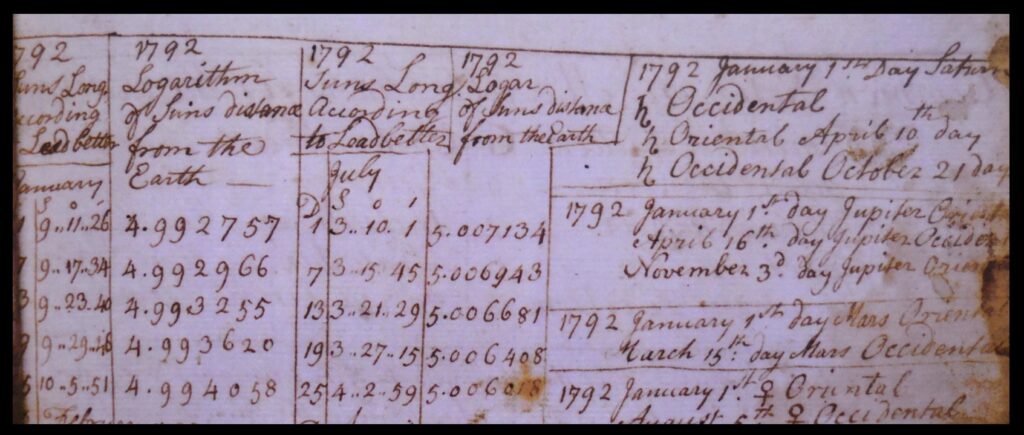 1792
Suns Long
According
Leedbetter
January
S o ,
1 9..11..26
7 9..17..34
13 9..23..40
19 9..29..48
25 10..5..51
1792
Logarithm
of Suns distance
from the
Earth
4.992757
4.992966
4.993255
4.993620
4.994058
1792
Suns Long.
According
to Leadbetter
July
D S o ,
1 3..10..1
7 3..15 45
13 3..21..29
19 3..27..15
25 4..2..59
1792
Logar
of Suns distance
from the Earth
5.007134
5.006943
5.006681
5.006408
5.006018
1792 January 1st Day Saturn
♄ Occidental
♄ Oriental April 10th day
♄ Occidental October 21 day
1792 January 1st day Jupiter Orient
April 16th day Jupiter Occident
November 3d day Jupiter Orient
1792 January 1st day Mars Oriental
March 15th day Mars Occidental
1792 January 1st ♀ Oriental
August 5th ♀ Occidental